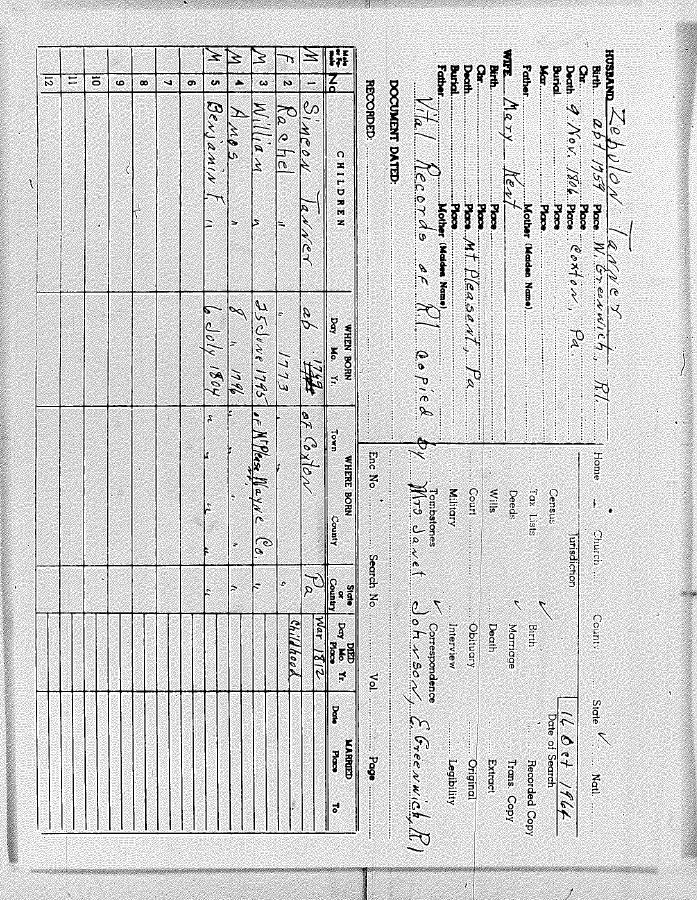 HUSBAND Zebulon Tanner
Birth abt 1759 Place W. Greenwich, RI
Chr. Place
Death 9 Nov. 1806 Place Coxton, Pa.
Burial Place
Mar. Place
Father Mother (Maiden Name)
WIFE Mary Kent
Birth Place
Chr. Place
Death Place Mt Pleasent, Pa
Burial Place
Father Mother (Maiden Name)
Home Church Count: State ✓ Natl.
Jurisdiction
16 Oct 1964
Date of Search
Census ✓ Birth Recorded Copy
Tax Lists
Deeds ✓ Marriage Trans. Copy
Wills Death Extract
Court Obituary Original
Military Interview Legibility
Tombstones ✓ Correspondence
Vital Records of RI copied by Mrs Janet Johnson, E Greenwich, RI
DOCUMENT DATED:
RECORDED: Enc No Search No. Vol. Page
Male or Female No. CHILDREN WHEN BORN Day Mo. Yr. WHERE BORN Town County State or Country DIED Day Mo. Yr. Place MARRIED Date Place To
M 1 Simeon Tanner ab 1769 of Coxton Pa War 1812
F 2 Rachel " " 1773 " " Childhood
M 3 William " 25 June 1795 of Mt Pleas. Wayne Co. "
M 4 Amos " 8 " 1796 " " "
M 5 Benjamin F. " 6 July 1804 " " " " "
6
7
8
9
10
11
12